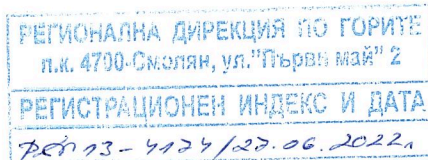 РЕГИОНАЛНА ДИРЕКЦИЯ ПО ГОРИТЕ
п.к. 4700-Смолян, ул."Първи май" 2
РЕГИСТРАЦИОНЕН ИНДЕКС И ДАТА
РДГ13-4174/27.06.2022г